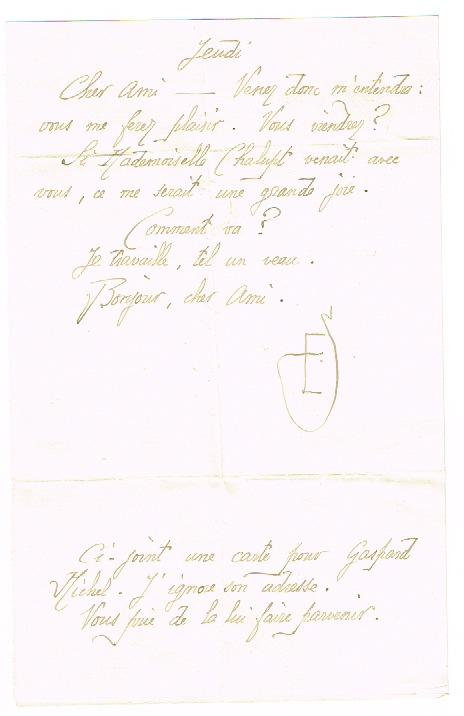 Jeudi
Cher Ami — Venez donc m'entendre :
vous me ferez plaisir. Vous viendrez ?
Si Mademoiselle Chalupt venait avec
vous, ce me serait une grande joie.
Comment va ?
Je travaille, tel un veau.
Bonjour, cher Ami.
ES
Ci-joint une carte pour Gaspard
Michel. J'ignore son adresse.
Vous prie de la lui faire parvenir.